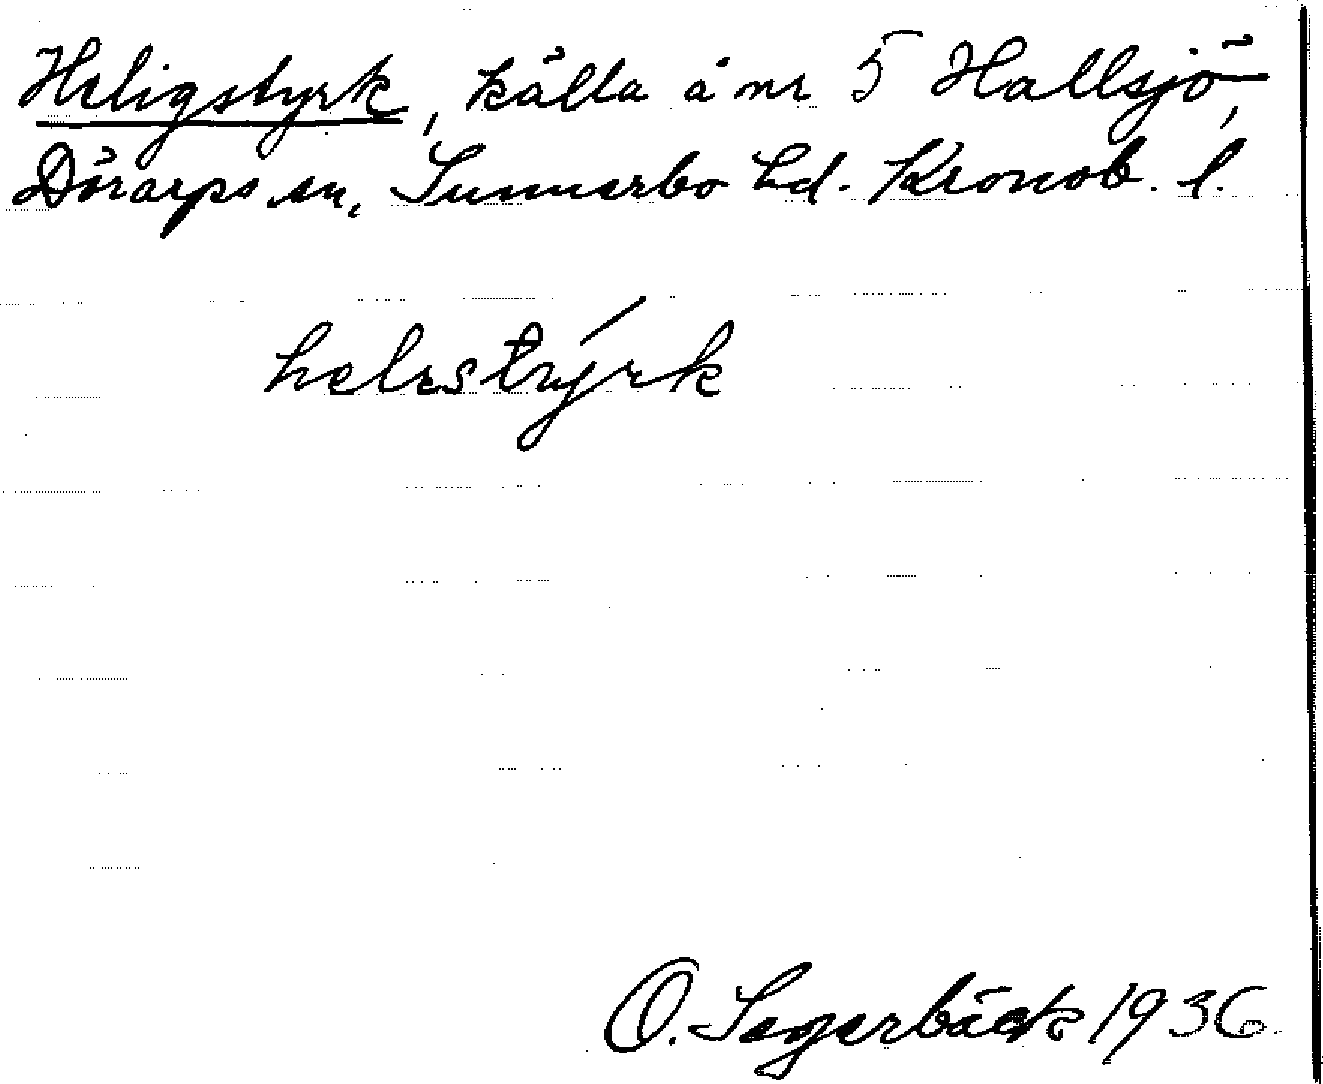 Heligstyrk, källa å nr 5 Hallsjö,
Dörarps sn, Sunnerbo hd. Kronob. l.
helestyrk
O. Segerbäck 1936